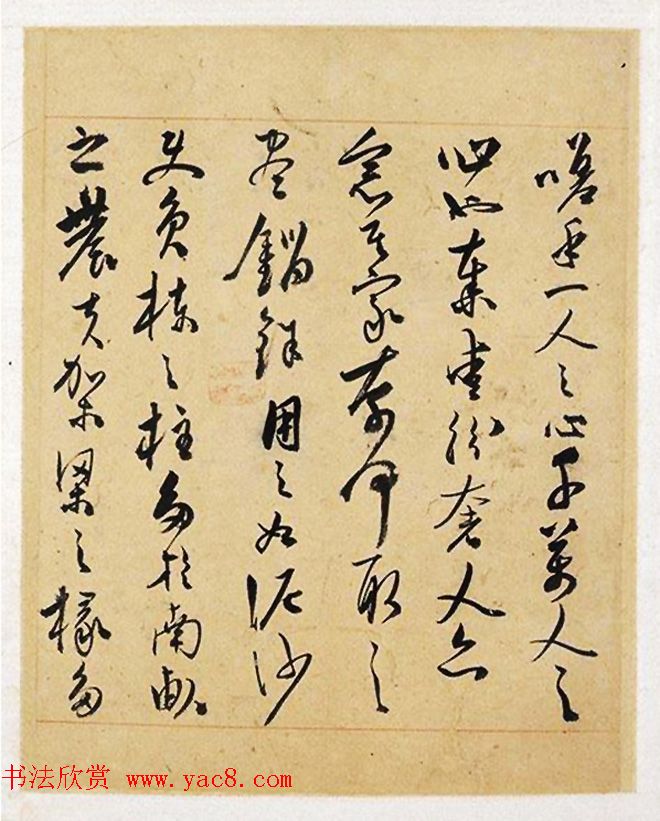 嗟乎一人之心千萬人之
心也秦愛紛奢人亦
念其家奈何取之
盡錙銖用之如泥沙
使負棟之柱多於南畝
之農夫架梁之椽多
书法欣赏 www.yac8.com